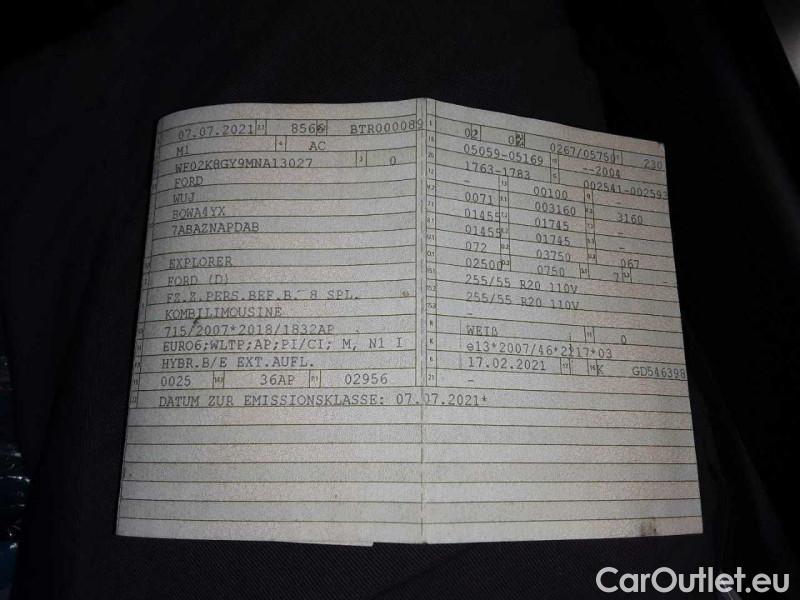 07.07.2021 8566 BTR000089
M1 AC
WF02K8GY9MNA13027 0
FORD
WUJ
BQWA4YX
7ABAZNAPDAB
EXPLORER
FORD (D)
FZ.Z.PERS.BEF.B. 8 SPL.
KOMBILIMOUSINE
715/2007*2018/1832AP
EURO6;WLTP;AP;PI/CI; M, N1 I
HYBR.B/E EXT.AUFL.
0025 36AP 02956
DATUM ZUR EMISSIONSKLASSE: 07.07.2021*
02 02 0267/05750 230
05059-05169 --2004
1763-1783 002541-002593
- 00100 -
0071 003160 3160
01455 01745 -
01455 01745 -
072 03750 067
02500 0750 7 -
255/55 R20 110V
255/55 R20 110V
-
WEIß 0
e13*2007/46*2217*03
17.02.2021 K GD546398
-
CarOutlet.eu